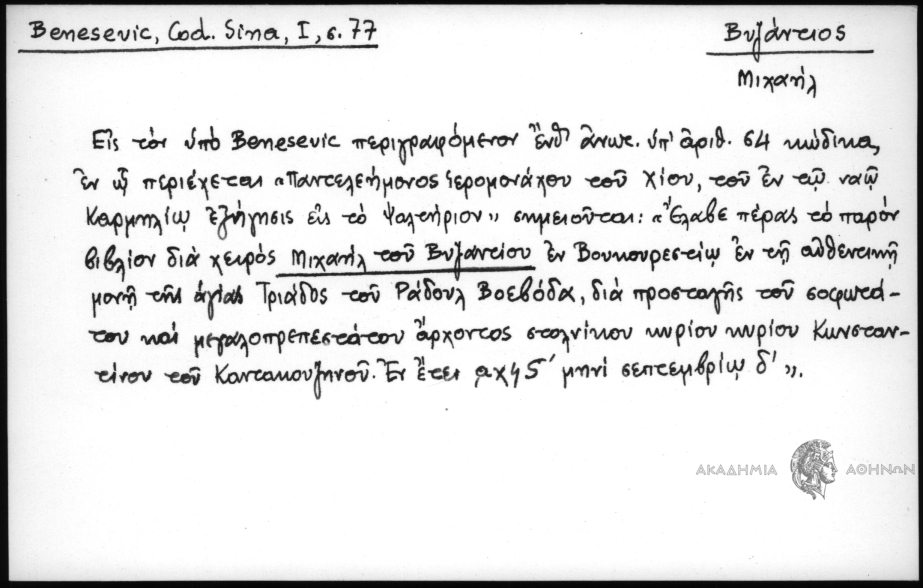 Benesevic, Cod. Sina, I, σ. 77
Βυζάντιος
Μιχαήλ
Εἰς τὸν ὑπὸ Benesevic περιγραφόμενον ἔνθ' ἀνωτ. ὑπ' ἀριθ. 64 κώδικα,
ἐν ᾧ περιέχεται "Παντελεήμονος ἱερομονάχου τοῦ Χίου, τοῦ ἐν τῷ ναῷ
Καρμηλίῳ ἐξήγησις εἰς τὸ ψαλτήριον" σημειοῦται: "Ἔλαβε πέρας τὸ παρὸν
βιβλίον διὰ χειρὸς Μιχαήλ τοῦ Βυζαντίου ἐν Βουκουρεστίῳ ἐν τῇ αὐθεντικῇ
μονῇ τῆς ἁγίας Τριάδος τοῦ Ράδουλ Βοεβόδα, διὰ προσταγῆς τοῦ σοφωτά-
του καὶ μεγαλοπρεπεστάτου ἄρχοντος στολνίκου κυρίου κυρίου Κωνσταν-
τίνου τοῦ Καντακουζηνοῦ. Ἐν ἔτει αχϟϛ' μηνὶ σεπτεμβρίῳ δ'".
ΑΚΑΔΗΜΙΑ ΑΘΗΝΩΝ